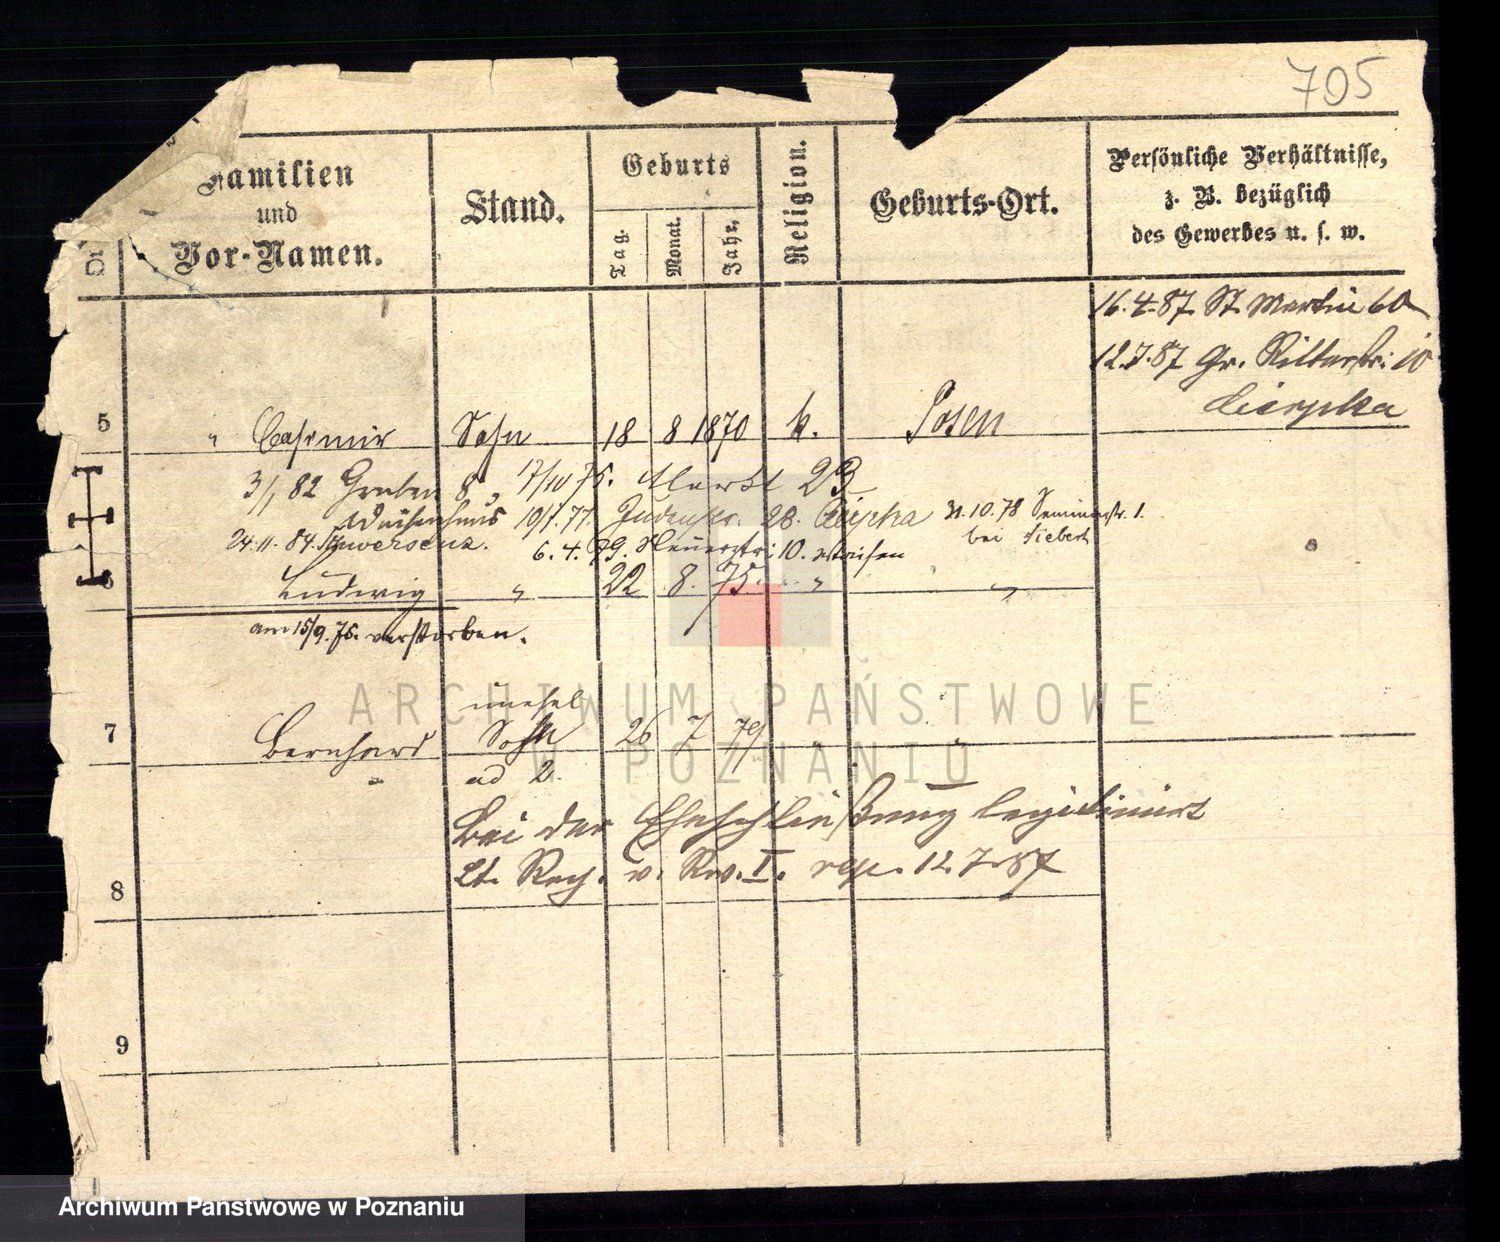 705
Familien
und
Vor-Namen.
Stand.
Geburts
Tag.
Monat.
Jahr.
Religion.
Geburts-Ort.
Persönliche Verhältnisse,
z. B. bezüglich
des Gewerbes u. s. w.
16.4.87. St. Martin 60
12.7.87 Gr. Ritterstr. 10
Cierpka
5 " Casimir Sohn 18 8 1870 k. Posen
3/1 82 Graben 8, 17/10 75. Markt 23
Waisenhaus 10/1. 77. Judenstr. 28. Cierpka 31.10.78 Seminarstr. 1.
24.11.84. Schwersenz. 6.4.79. 10. Waisen bei Siebert
6 Ludwig " 22 8. 75. " "
am 15/9. 75. verstorben.
unehel
7 Bernhard Sohn 26 7 79
ad 2.
Bei der Eheschließung legitimirt
8 Lt. Rech. v. Rev. I. 12.7.87
9
ARCHIWUM PAŃSTWOWE
W POZNANIU
Archiwum Państwowe w Poznaniu